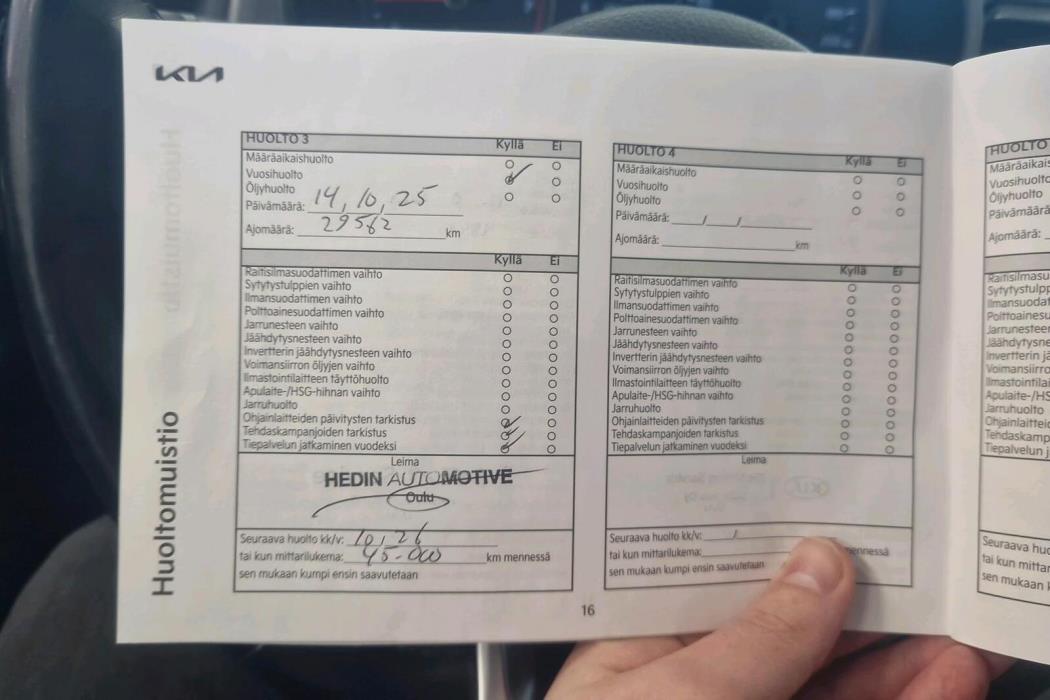 KIA
Huoltomuistio
HUOLTO 3
Kyllä Ei
Määräaikaishuolto
Vuosihuolto
Öljyhuolto
Päivämäärä: 14, 10, 25
Ajomäärä: 29562 km
Kyllä Ei
Raitisilmasuodattimen vaihto
Sytytystulppien vaihto
Ilmansuodattimen vaihto
Polttoainesuodattimen vaihto
Jarrunesteen vaihto
Jäähdytysnesteen vaihto
Invertterin jäähdytysnesteen vaihto
Voimansiirron öljyjen vaihto
Ilmastointilaitteen täyttöhuolto
Apulaite-/HSG-hihnan vaihto
Jarruhuolto
Ohjainlaitteiden päivitysten tarkistus
Tehdaskampanjoiden tarkistus
Tiepalvelun jatkaminen vuodeksi
Leima
HEDIN AUTOMOTIVE
Oulu
Seuraava huolto kk/v: 10, 26
tai kun mittarilukema: 45-000 km mennessä
sen mukaan kumpi ensin saavutetaan
HUOLTO 4
Kyllä Ei
Määräaikaishuolto
Vuosihuolto
Öljyhuolto
Päivämäärä: / /
Ajomäärä: km
Kyllä Ei
Raitisilmasuodattimen vaihto
Sytytystulppien vaihto
Ilmansuodattimen vaihto
Polttoainesuodattimen vaihto
Jarrunesteen vaihto
Jäähdytysnesteen vaihto
Invertterin jäähdytysnesteen vaihto
Voimansiirron öljyjen vaihto
Ilmastointilaitteen täyttöhuolto
Apulaite-/HSG-hihnan vaihto
Jarruhuolto
Ohjainlaitteiden päivitysten tarkistus
Tehdaskampanjoiden tarkistus
Tiepalvelun jatkaminen vuodeksi
Leima
Seuraava huolto kk/v: /
tai kun mittarilukema: mennessä
sen mukaan kumpi ensin saavutetaan
16
HUOLTO
Määräaikais
Vuosihuolto
Öljyhuolto
Päivämäärä
Ajomäärä:
Raitisilmasu
Sytytystulpp
Ilmansuodat
Polttoainesu
Jarrunesteen
Jäähdytysne
Invertterin jä
Voimansiirro
Ilmastointila
Apulaite-/HS
Jarruhuolto
Ohjainlaitteid
Tehdaskamp
Tiepalvelun j
Seuraava huo
tai kun mittar
sen mukaan k